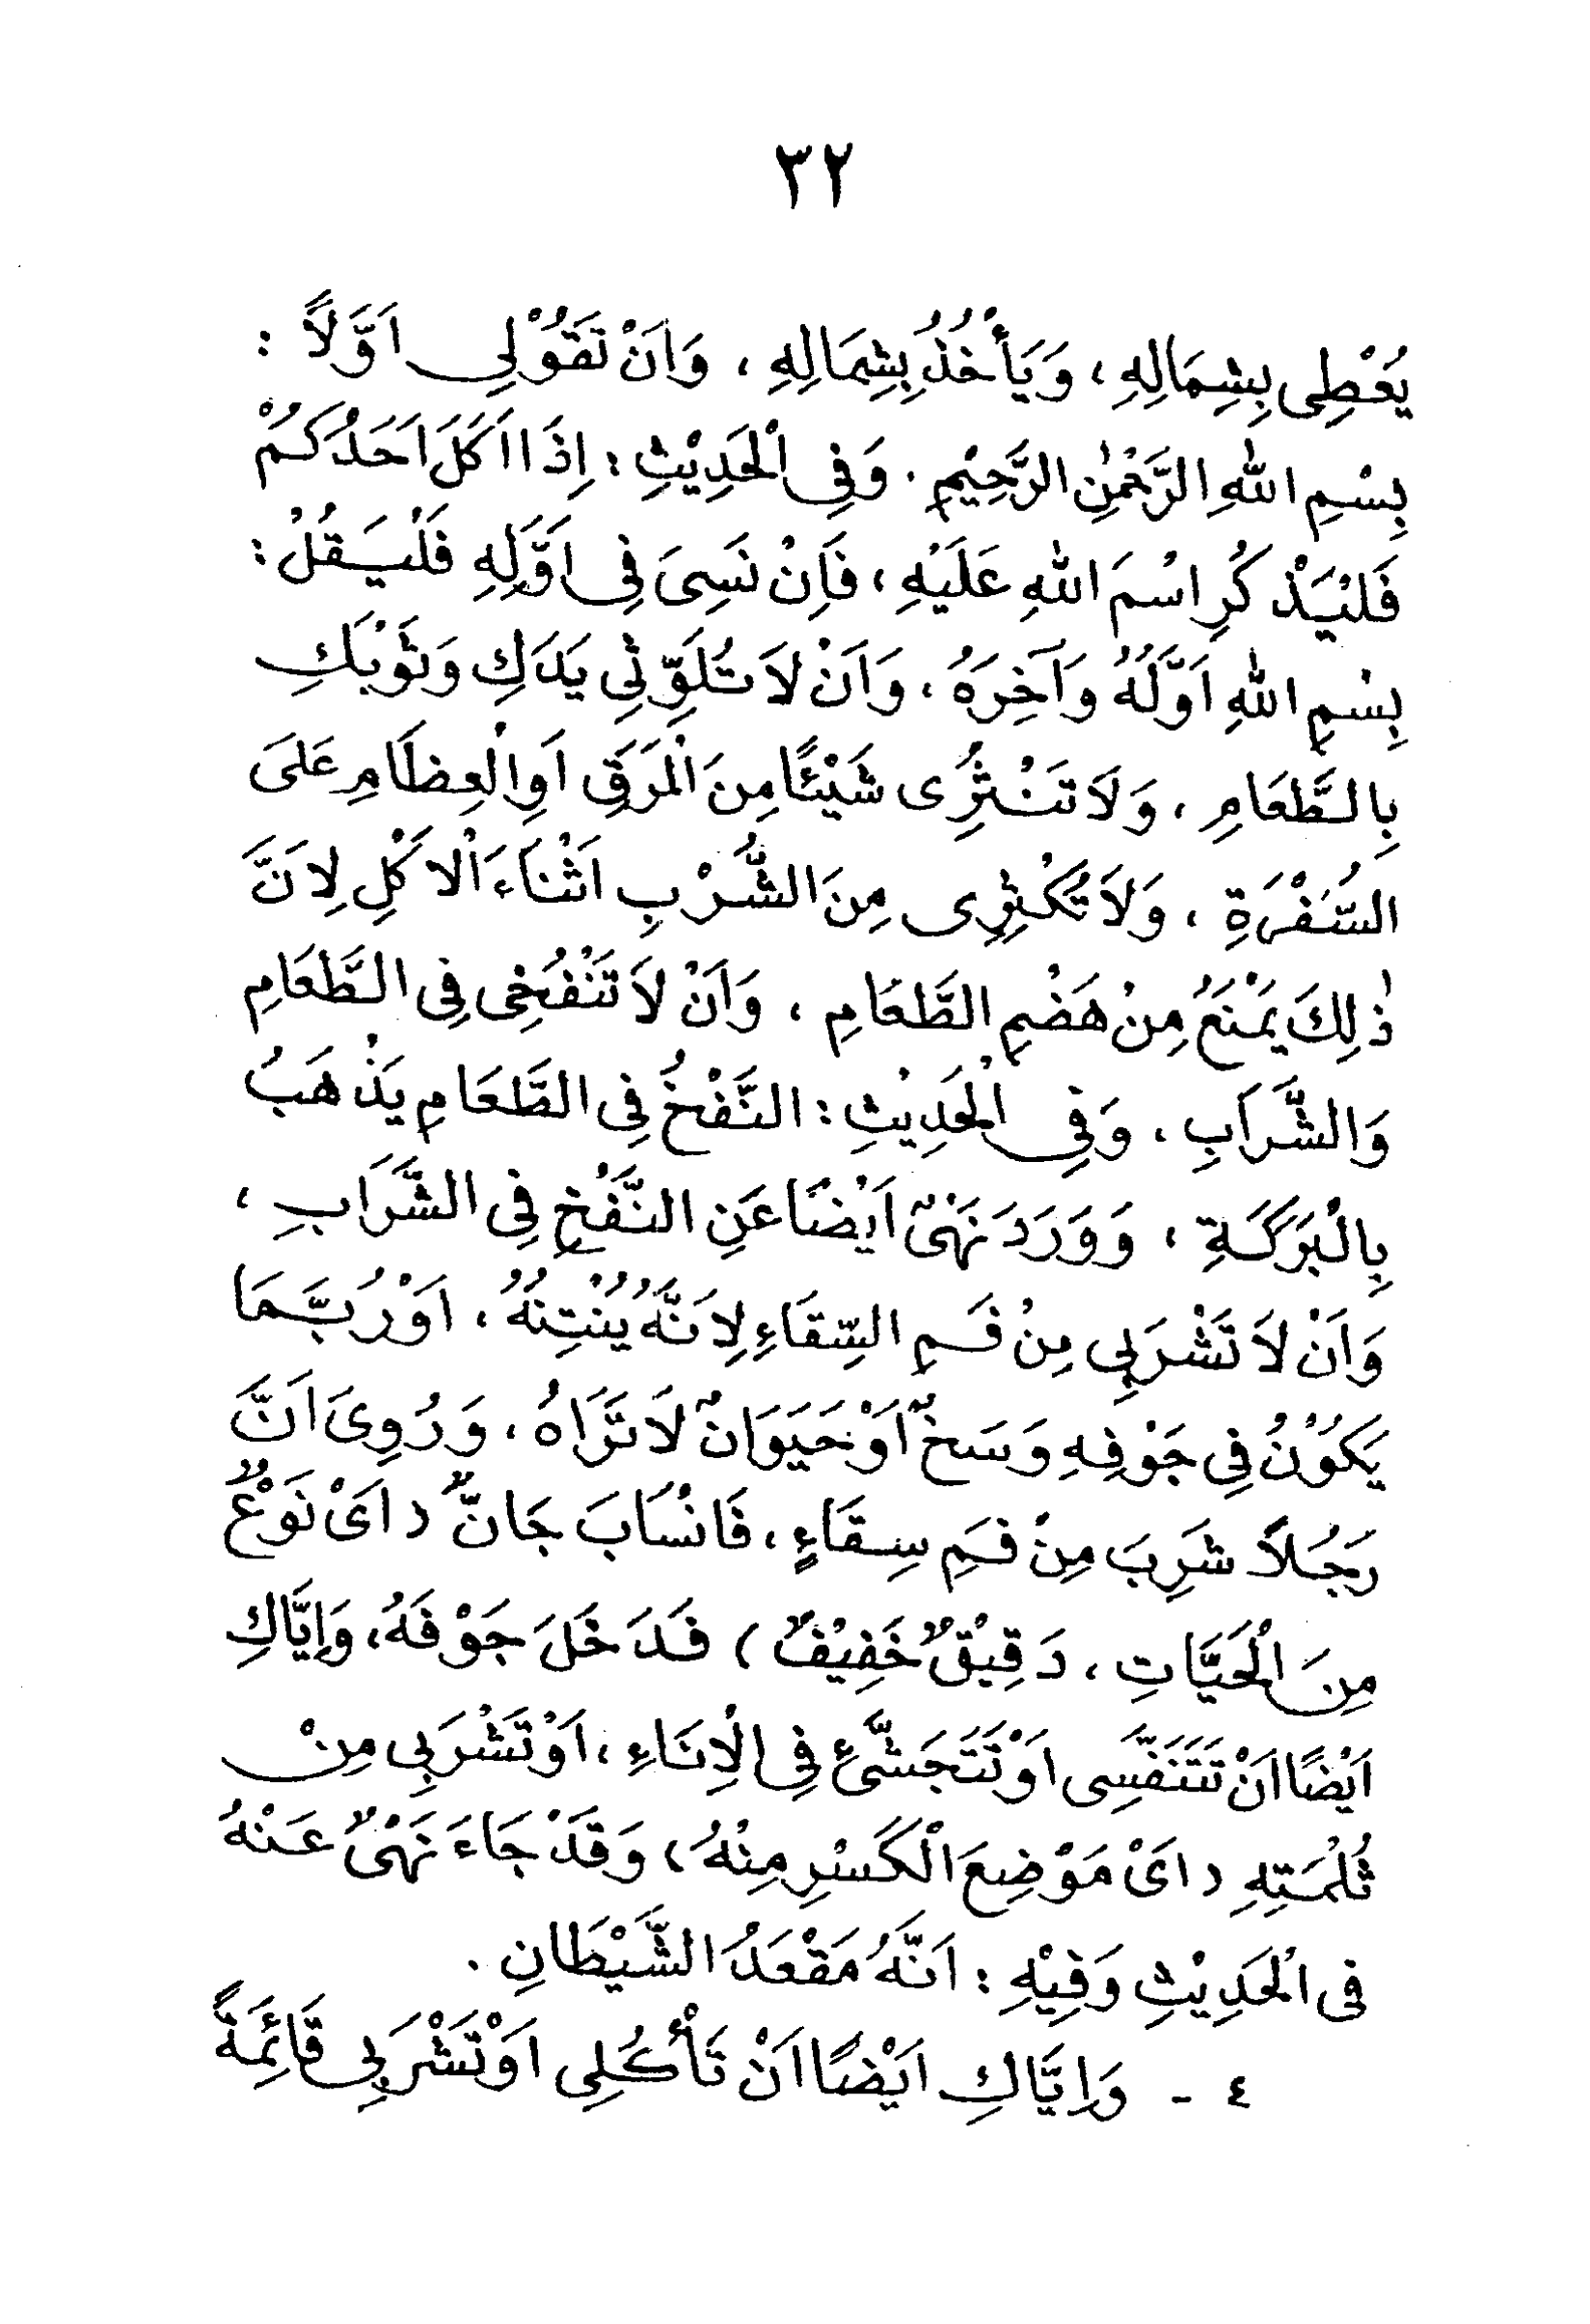 ٣٢
يُعْطِى بِشِمَالِهِ ، وَيَأْخُذُ بِشِمَالِهِ ، وَاَنْ تَقُوْلِى اَوَّلاً :
بِسْمِ اللهِ الرَّحْمٰنِ الرَّحِيْمِ . وَفِى الْحَدِيْثِ : اِذَا اَكَلَ اَحَدُكُمْ
فَلْيَذْكُرِ اسْمَ اللهِ عَلَيْهِ ، فَاِنْ نَسِىَ فِى اَوَّلِهِ فَلْيَقُلْ :
بِسْمِ اللهِ اَوَّلَهُ وَآخِرَهُ ، وَاَنْ لاَ تُلَوِّثِي يَدَكِ وَثَوْبَكِ
بِالطَّعَامِ ، وَلاَ تَنْثُرِى شَيْئًا مِنَ الْمَرَقِ اَوِ الْعِظَامِ عَلَى
السُّفْرَةِ ، وَلاَ تُكْثِرِى مِنَ الشُّرْبِ اَثْنَاءَ اْلاَكْلِ لِاَنَّ
ذٰلِكَ يَمْنَعُ مِنْ هَضْمِ الطَّعَامِ ، وَاَنْ لاَ تَنْفُخِى فِى الطَّعَامِ
وَالشَّرَابِ . وَفِى الْحَدِيْثِ : النَّفْخُ فِى الطَّعَامِ يَذْهَبُ
بِالْبَرَكَةِ ، وَوَرَدَ نَهْىٌ اَيْضًا عَنِ النَّفْخِ فِى الشَّرَابِ ،
وَاَنْ لاَ تَشْرَبِى مِنْ فَمِ السِّقَاءِ لِاَنَّهُ يُنْتِنُهُ ، اَوْ رُبَّمَا
يَكُوْنُ فِى جَوْفِهِ وَسَخٌ اَوْ حَيَوَانٌ لاَ تَرَاهُ ، وَرُوِىَ اَنَّ
رَجُلاً شَرِبَ مِنْ فَمِ سِقَاءٍ ، فَانْسَابَ جَانٌّ ( اَىْ نَوْعٌ
مِنَ الْحَيَّاتِ ، دَقِيْقٌ خَفِيْفٌ ) فَدَخَلَ جَوْفَهُ ، وَاِيَّاكِ
اَيْضًا اَنْ تَتَنَفَّسِى اَوْ تَتَجَشَّئِ فِى الْاِنَاءِ ، اَوْ تَشْرَبِى مِنْ
ثُلْمَتِهِ ( اَىْ مَوْضِعَ الْكَسْرِ مِنْهُ ) وَقَدْ جَاءَ نَهْىٌ عَنْهُ
فِى الْحَدِيْثِ وَفِيْهِ : اَنَّهُ مَقْعَدُ الشَّيْطَانِ .
٤ - وَاِيَّاكِ اَيْضًا اَنْ تَأْكُلِى اَوْ تَشْرَبِى قَائِمَةً